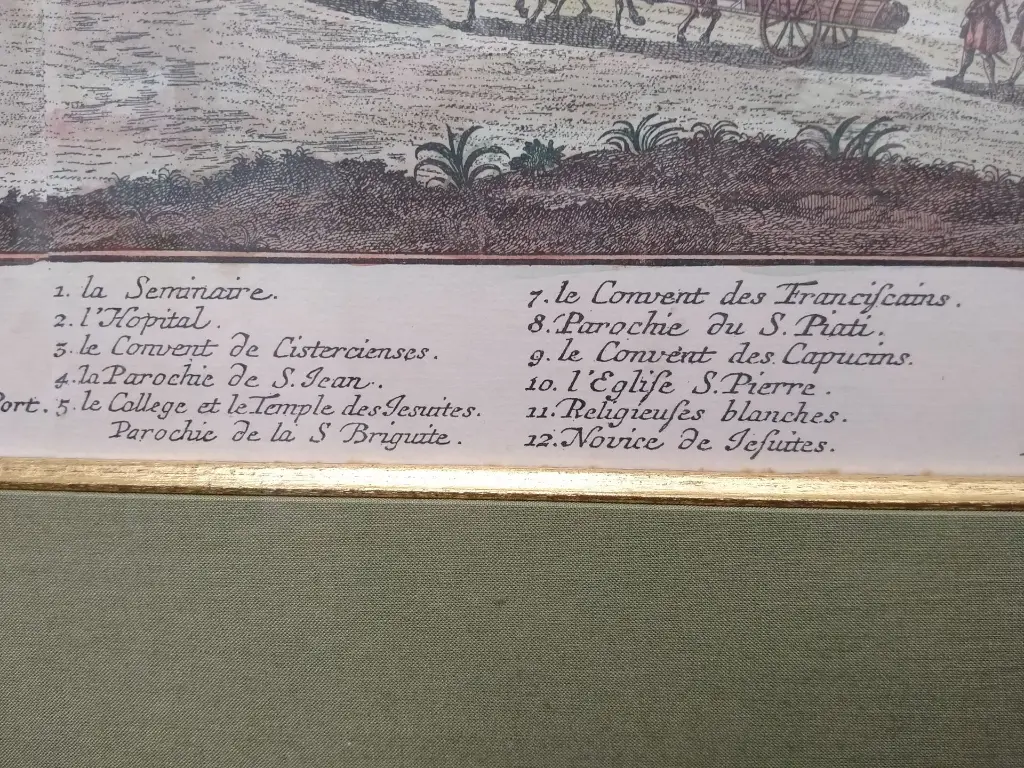 1. la Seminaire.
2. l'Hopital.
3. le Convent de Cistercienses.
4. la Parochie de S. Jean.
Port. 5. le College et le Temple des Jesuites.
Parochie de la S Briguite.
7. le Convent des Franciſcains.
8. Parochie du S. Piati.
9. le Convent des Capucins.
10. l'Egliſe S. Pierre.
11. Religieuſes blanches.
12. Novice de Jeſuites.